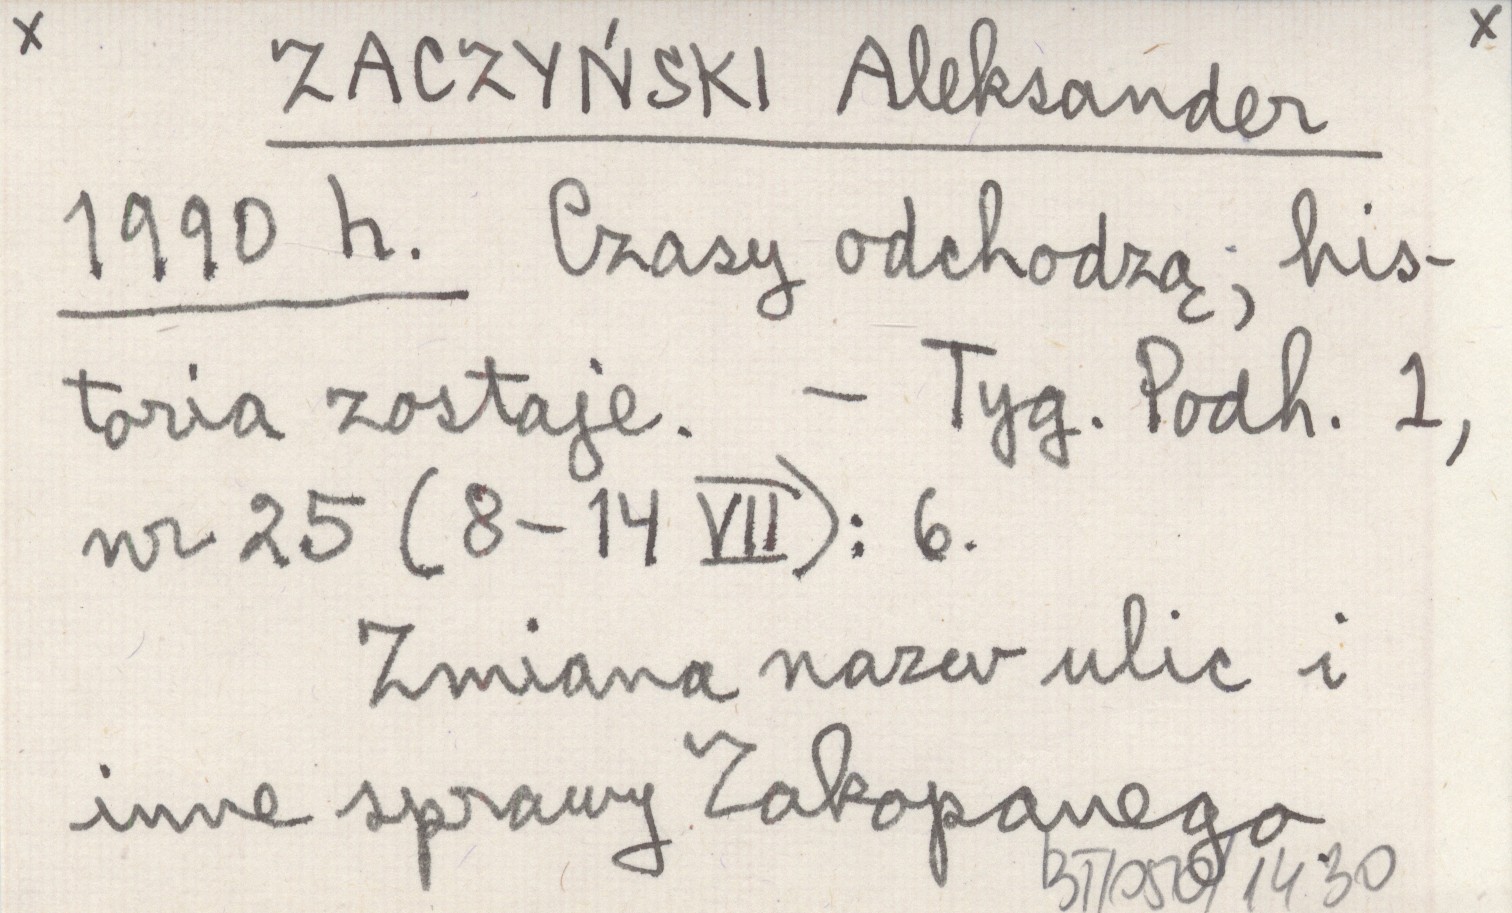 x x
ZACZYŃSKI Aleksander
1990 h. Czasy odchodzą; his-
toria zostaje. – Tyg. Podh. 1,
nr 25 (8–14 VII): 6.
Zmiana nazw ulic i
inne sprawy Zakopanego
1430